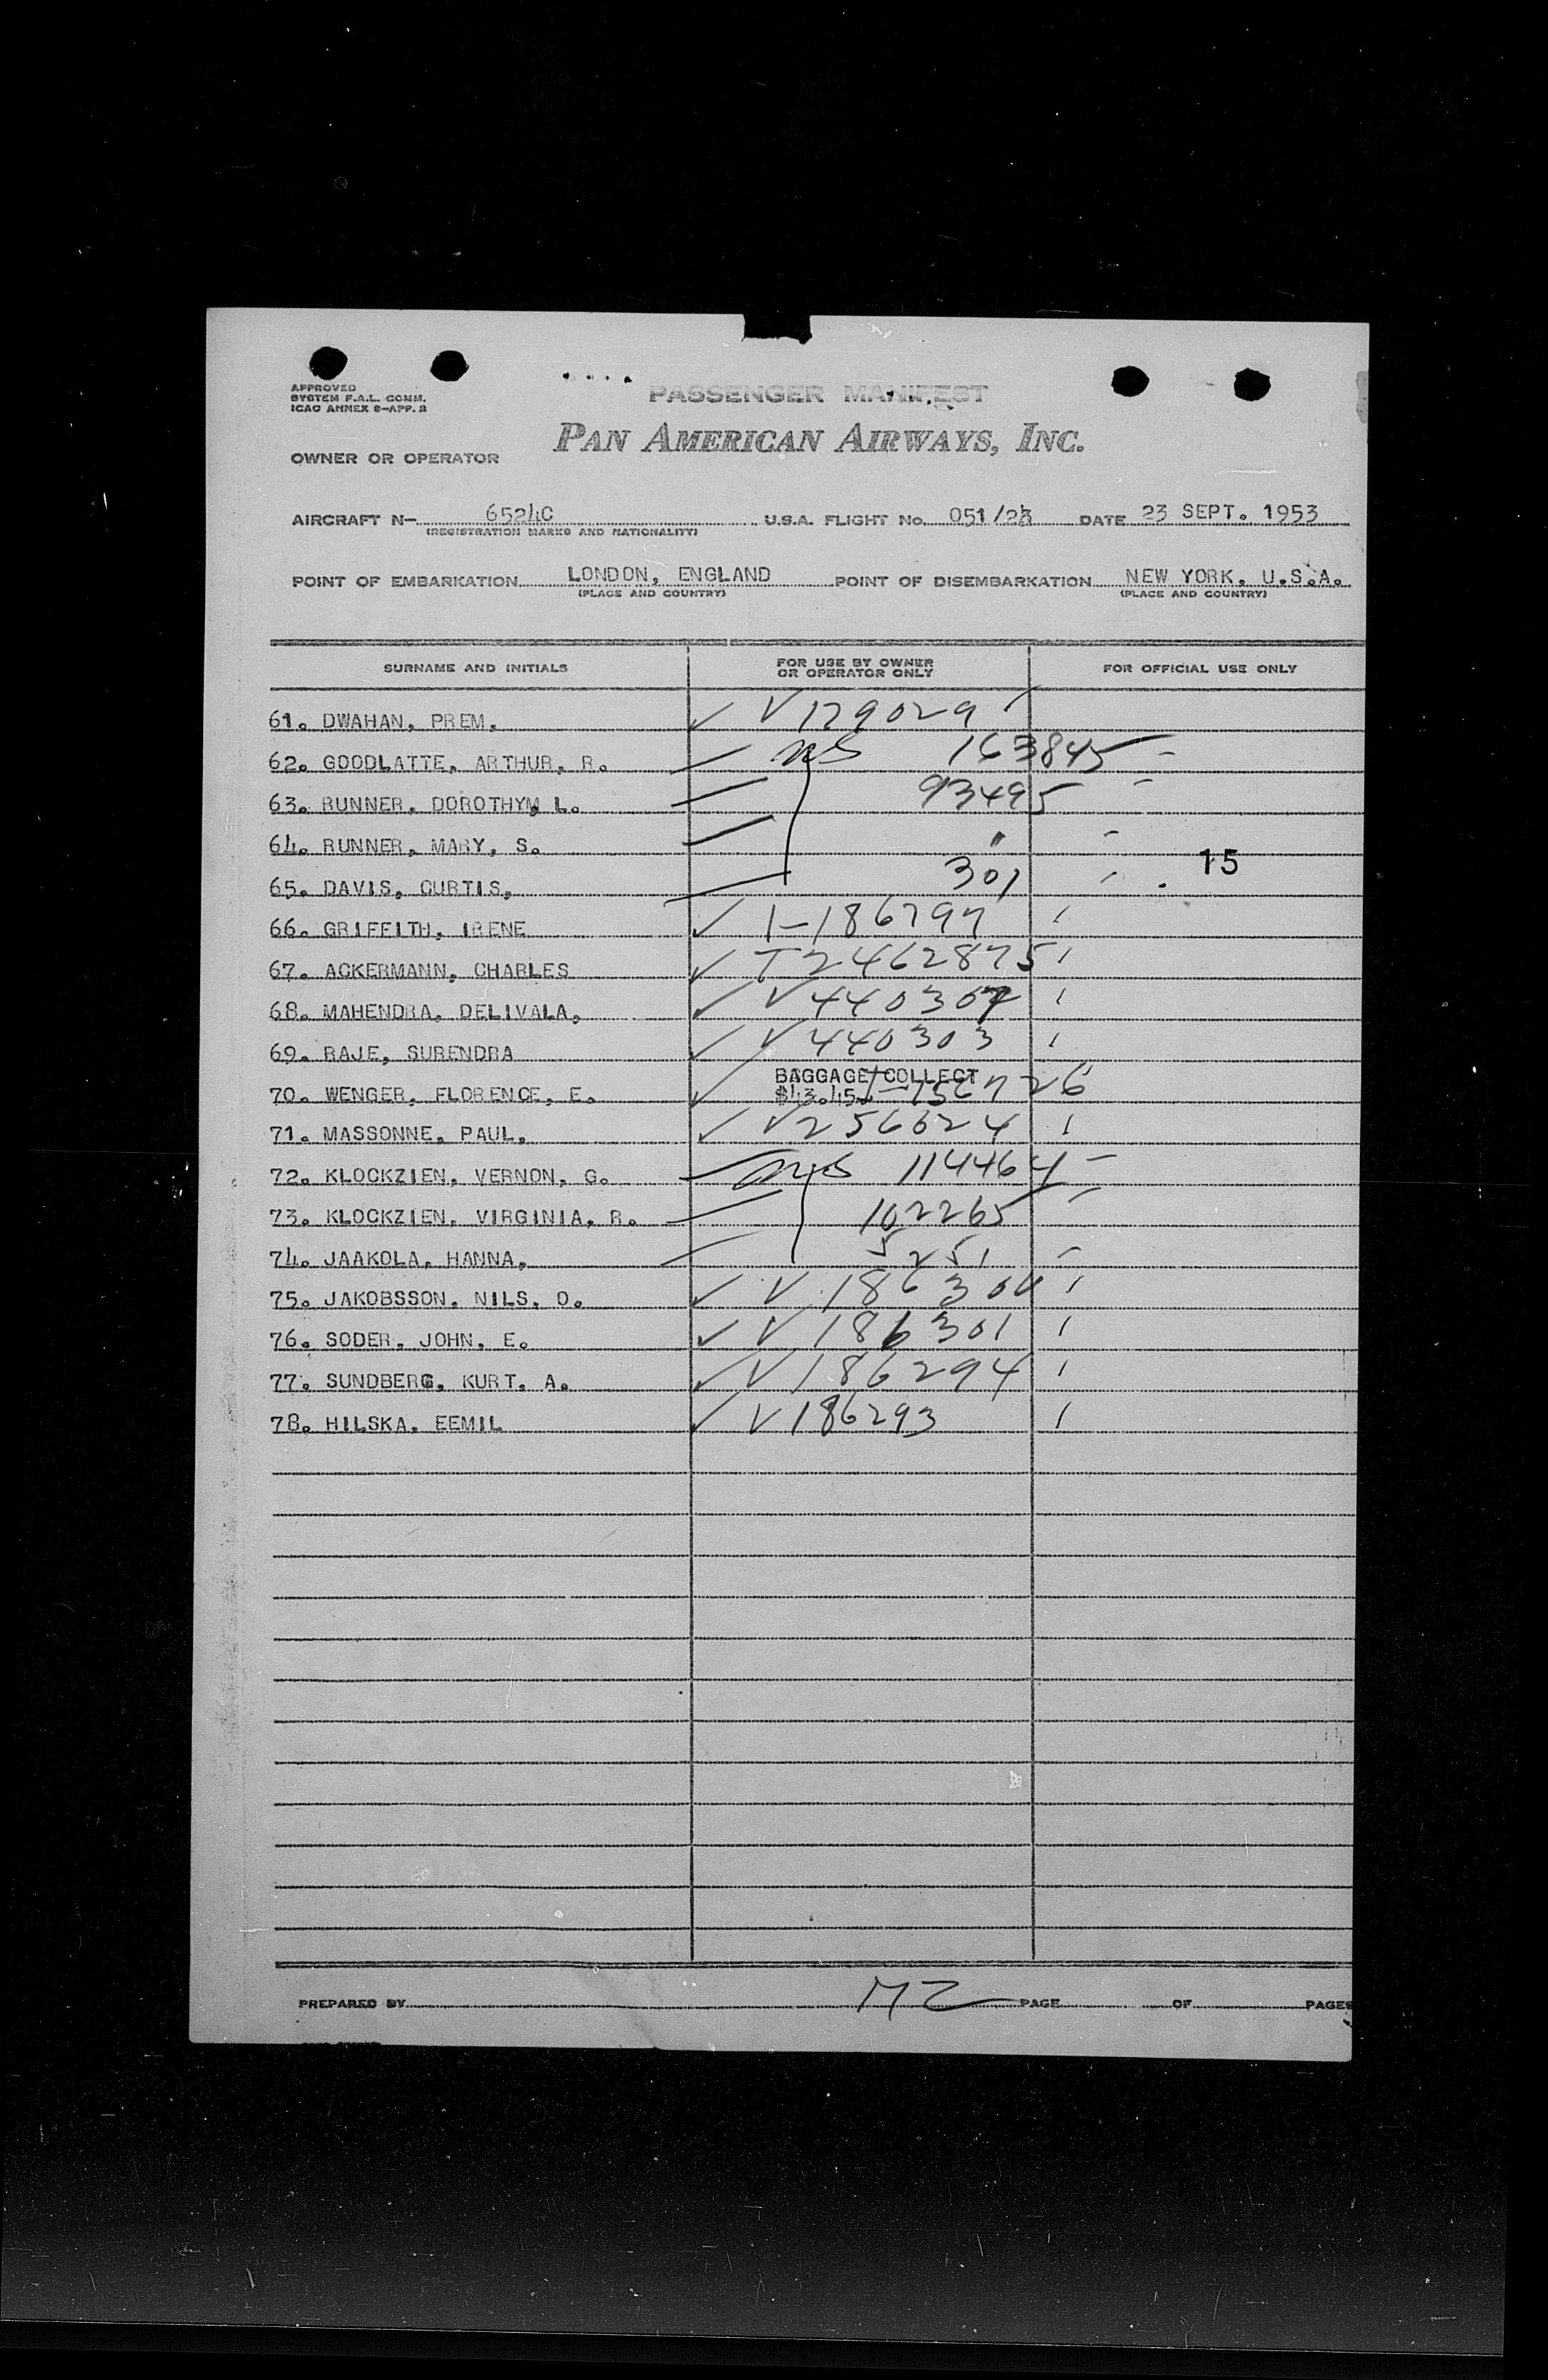 APPROVED
SYSTEM F.A.L. COMM.
ICAO ANNEX 9-APP. 3
PASSENGER MANIFEST
PAN AMERICAN AIRWAYS, INC.
OWNER OR OPERATOR
AIRCRAFT N- 6524C U.S.A. FLIGHT No. 051/23 DATE 23 SEPT. 1953
(REGISTRATION MARKS AND NATIONALITY)
POINT OF EMBARKATION LONDON, ENGLAND POINT OF DISEMBARKATION NEW YORK, U.S.A.
(PLACE AND COUNTRY) (PLACE AND COUNTRY)
SURNAME AND INITIALS FOR USE BY OWNER OR OPERATOR ONLY FOR OFFICIAL USE ONLY
61. DWAHAN, PREM, ✓ V179029
62. GOODLATTE, ARTHUR, R. 163845 -
63. RUNNER, DOROTHYM, L. 93495 -
64. RUNNER, MARY, S. " -
15
65. DAVIS, CURTIS, 301
66. GRIFFITH, IRENE ✓ I-186797
67. ACKERMANN, CHARLES ✓ T2462875
68. MAHENDRA, DELIVALA, ✓ V440307
69. RAJE, SURENDRA ✓ V440303
BAGGAGE COLLECT
70. WENGER, FLORENCE, E. ✓ $43.45. I-756726
71. MASSONNE, PAUL, ✓ V256624
72. KLOCKZIEN, VERNON, G. 114464 -
73. KLOCKZIEN, VIRGINIA, R. 102265 -
74. JAAKOLA, HANNA, 5251 -
75. JAKOBSSON, NILS, O. ✓ V186300
76. SODER, JOHN, E. ✓ V186301
77. SUNDBERG, KURT, A. ✓ V186294
78. HILSKA, EEMIL ✓ V186293
PREPARED BY MZ PAGE OF PAGES